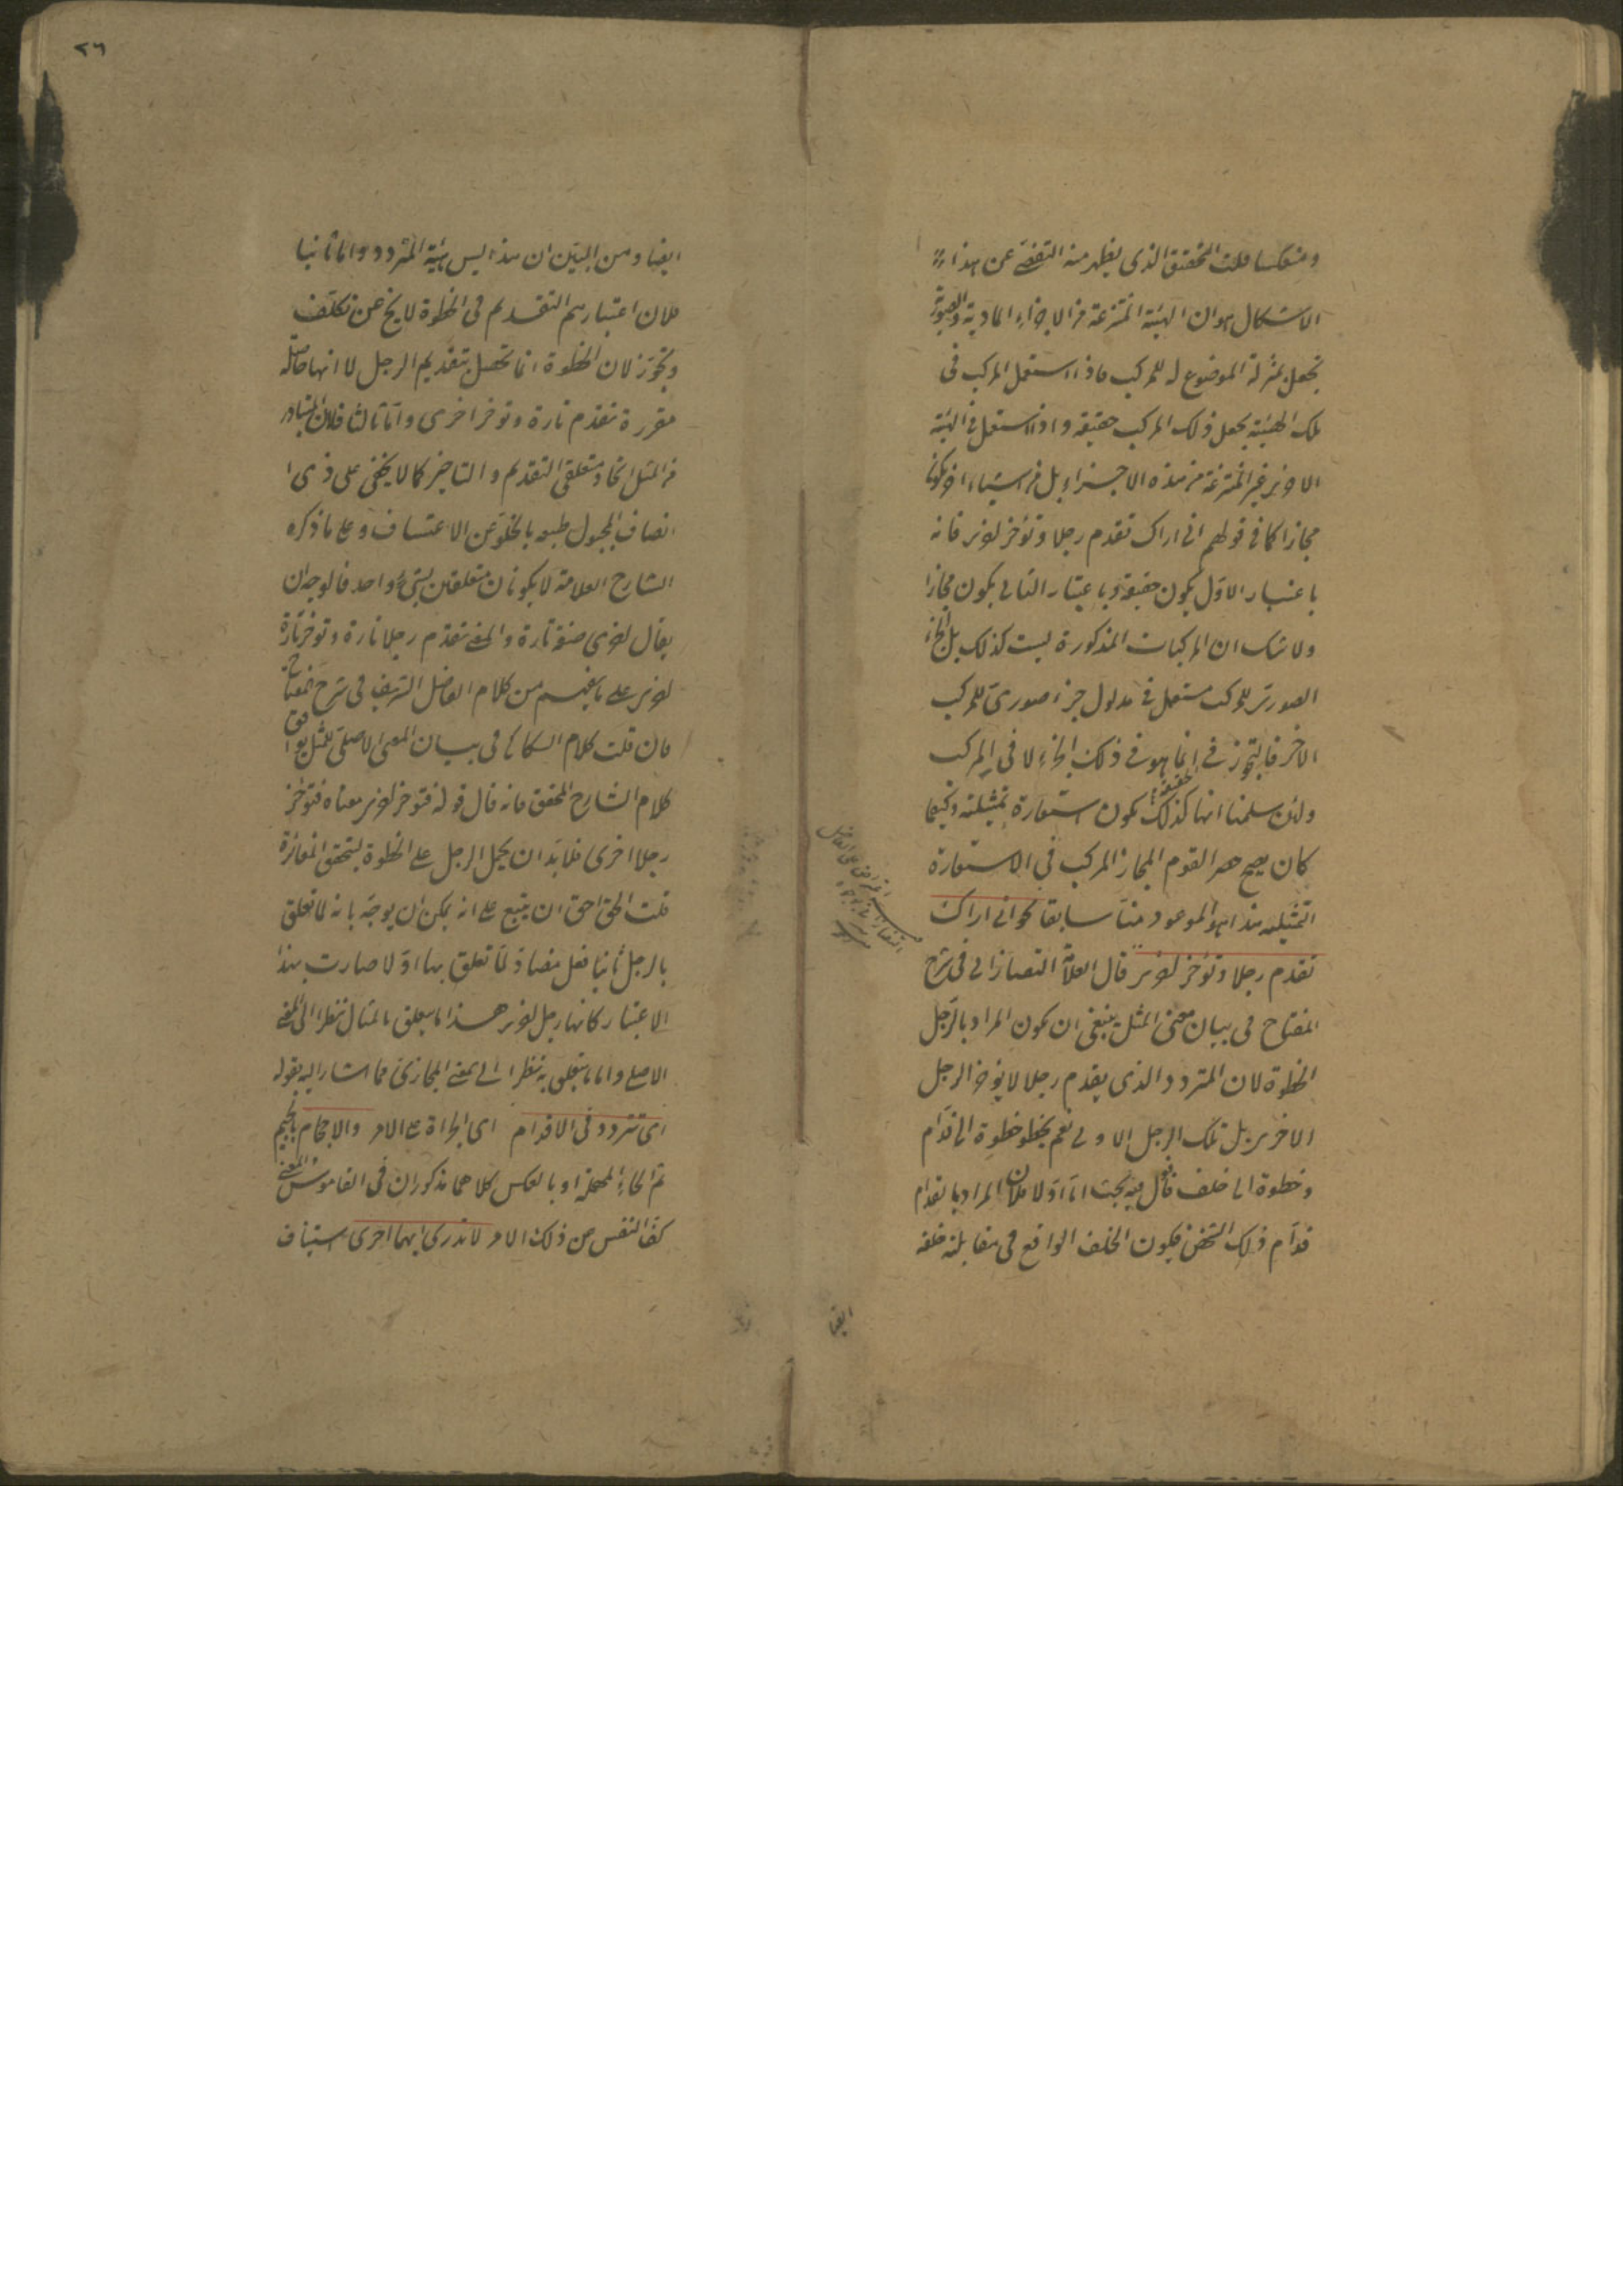 ومنعكسا قلت التحقيق الذى يظهر منه التفصّى عن هذا
الاشكال هو ان الهيئة المنتزعة من الاجزاء المادية والصورية
تجعل بمنزلة الموضوع له للمركب فاذا استعمل المركب فى
تلك الهيئة يجعل ذلك المركب حقيقة واذا استعمل فى الهيئة
الاخرى غير المنتزعة من هذه الاجزاء بل من اشياء اخر يكون
مجازا كما فى قولهم انى اراك تقدم رجلا وتؤخر اخرى فانه
باعتبار الاول يكون حقيقة وباعتبار الثانى يكون مجازا
ولا شك ان المركبات المذكورة ليست كذلك بل الجزء
الصورى للمركب مستعمل فى مدلول جزء صورى للمركب
الاخر فالتجوز فى انما هو فى ذلك الجزء لا فى المركب
ولئن سلمنا انها كذلك يكون استعارة تمثيلية وكيفما
كان يصح حصر القوم المجاز المركب فى الاستعارة
التمثيلية هذا هو الموعود منا سابقا نحو انى اراك
تقدم رجلا وتؤخر اخرى قال العلامة التفتازانى فى شرح
المفتاح فى بيان معنى المثل ينبغى ان يكون المراد بالرجل
الخطوة لان المتردد الذى يقدم رجلا لا يؤخر الرجل
الاخرى بل تلك الرجل الاولى نعم يخطو خطوة الى قدام
وخطوة الى خلف قال فيه بحث اما اولا فلان المراد بالقدام
قدام ذلك الشخص فيكون الخلف الواقع فى مقابلته خلفه
ايضا
٢٦
ايضا ومن البيّن ان هذا ليس هيئة المتردد واما ثانيا
فلان اعتبارهم التقديم فى الخطوة لا يخ عن تكلف
وتجوّز لان الخطوة انما تحصل بتقديم الرجل لا انها حاصلة
مقررة تتقدم تارة وتؤخر اخرى واما ثالثا فلان المتبادر
من المثل اتحاد متعلقى التقديم والتاخير كما لا يخفى على ذى ا
نصاف المجبول طبعه بالخلو عن الاعتساف وعلى ما ذكره
الشارح العلامة لا يكونان متعلقين بشئ واحد فالوجه ان
يقال اخرى صفة تارة والمعنى تقدم رجلا تارة وتؤخر تارة
اخرى على ما يفهم من كلام الفاضل الشريف فى شرح المفتاح
فان قلت كلام السكاكى فى بيان المعنى الاصلى للمثل يوافق
كلام الشارح المحقق فانه قال قوله فتؤخر اخرى معناه فتؤخر
رجلا اخرى فلا بد ان يحمل الرجل على الخطوة ليتحقق المغائرة
قلت الحق احق ان يتبع على انه يمكن ان يوجّه بانه لما تعلق
بالرجل ثانيا فعل مضاد لما تعلق بها اولا صارت بهذا
الاعتبار كانها رجل اخرى هذا ما يتعلق بالمثال نظرا الى المعنى
الاصلى واما ما يتعلق به نظرا الى المعنى المجازى فما اشار اليه بقوله
اى تتردد فى الاقدام اى الجراة على الامر والاحجام بالجيم
ثم الحاء المهملة او بالعكس كلاهما مذكوران فى القاموس المعنى
كف النفس من ذلك الامر لا تدرى ايهما احرى استيناف